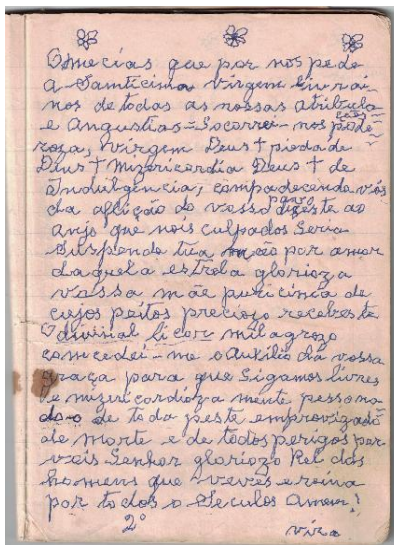 Omecias que por nos pede
a Samticima virgem Livrai-
nos de todas as nossas atribula
ções
e Angustias = Socorrei-nos piede
roza, virgem Deus + piedade
Deus + Mizericordia Deus + de
indulgencia, compadecendo vós
da aflição do vosso povo dizeste ao
anjo que nois culpados Seria
Suspenda tua mão por amor
daquela estrela glorioza
vossa mãe puricinca de
cujos peitos preciozo recebeste
O divinial licor milagrozo
comcedei-me o Auxilio da vossa
graça para que Sigamos livres
e mizericordioza mente
de toda peste emprovizado
de morte e de todos perigos por
vois Senhor gloriozo Rei dos
homens que veves e reina
por todos o Seculos Amem!
2º
vira